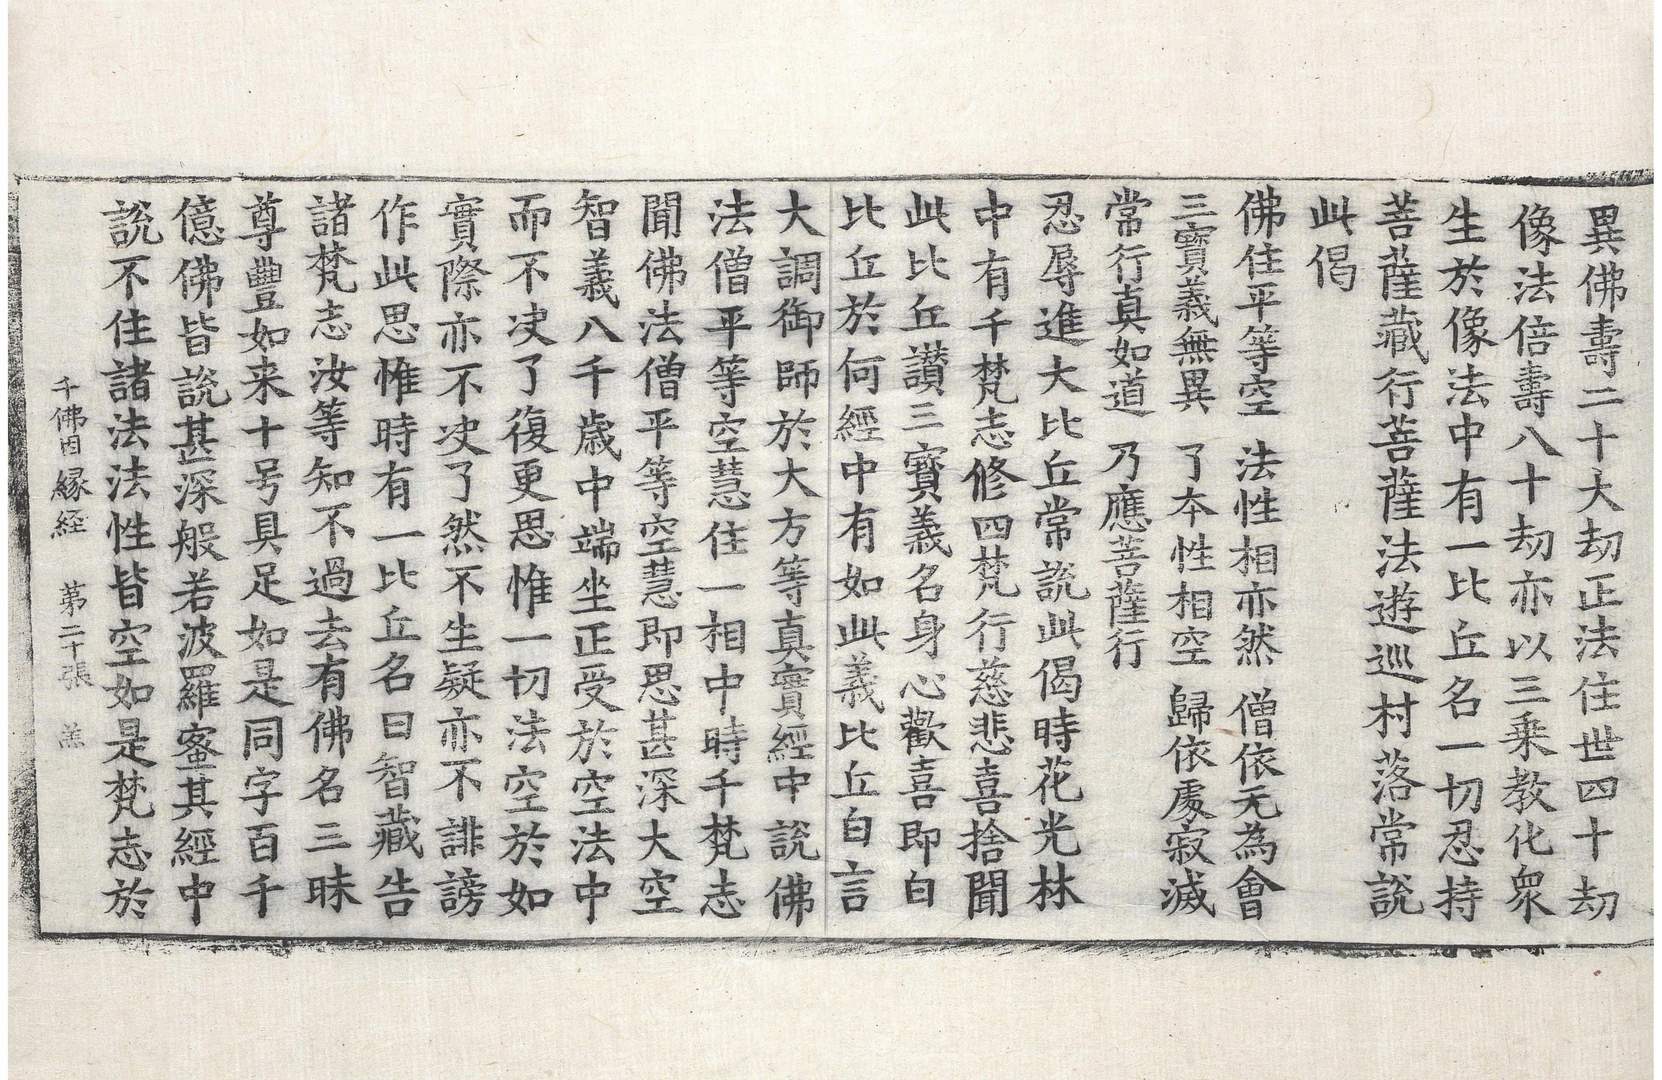 異佛壽二十大劫正法住世四十劫
像法倍壽八十劫亦以三乗教化衆
生於像法中有一比丘名一切忍持
菩薩藏行菩薩法遊巡村落常說
此偈
佛住平等空 法性相亦然 僧依无為會
三寶義無異 了本性相空 歸依處寂滅
常行真如道 乃應菩薩行
忍辱進大比丘常說此偈時花光林
中有千梵志修四梵行慈悲喜捨聞
此比丘讃三寶義名身心歡喜即白
比丘於何經中有如此義比丘白言
大調御師於大方等真實經中說佛
法僧平等空慧住一相中時千梵志
聞佛法僧平等空慧即思甚深大空
智義八千歲中端坐正受於空法中
而不决了復更思惟一切法空於如
實際亦不决了然不生疑亦不誹謗
作此思惟時有一比丘名曰智藏告
諸梵志汝等知不過去有佛名三昧
尊豐如来十号具足如是同字百千
億佛皆說甚深般若波羅蜜其經中
說不住諸法法性皆空如是梵志於
千佛因縁経 第二十張 羔